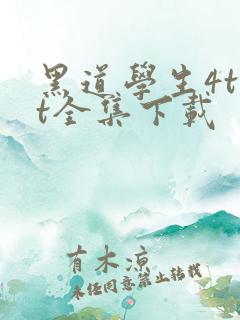 黑道學生4t
t全集下載
有木凉
未经同意禁止转载